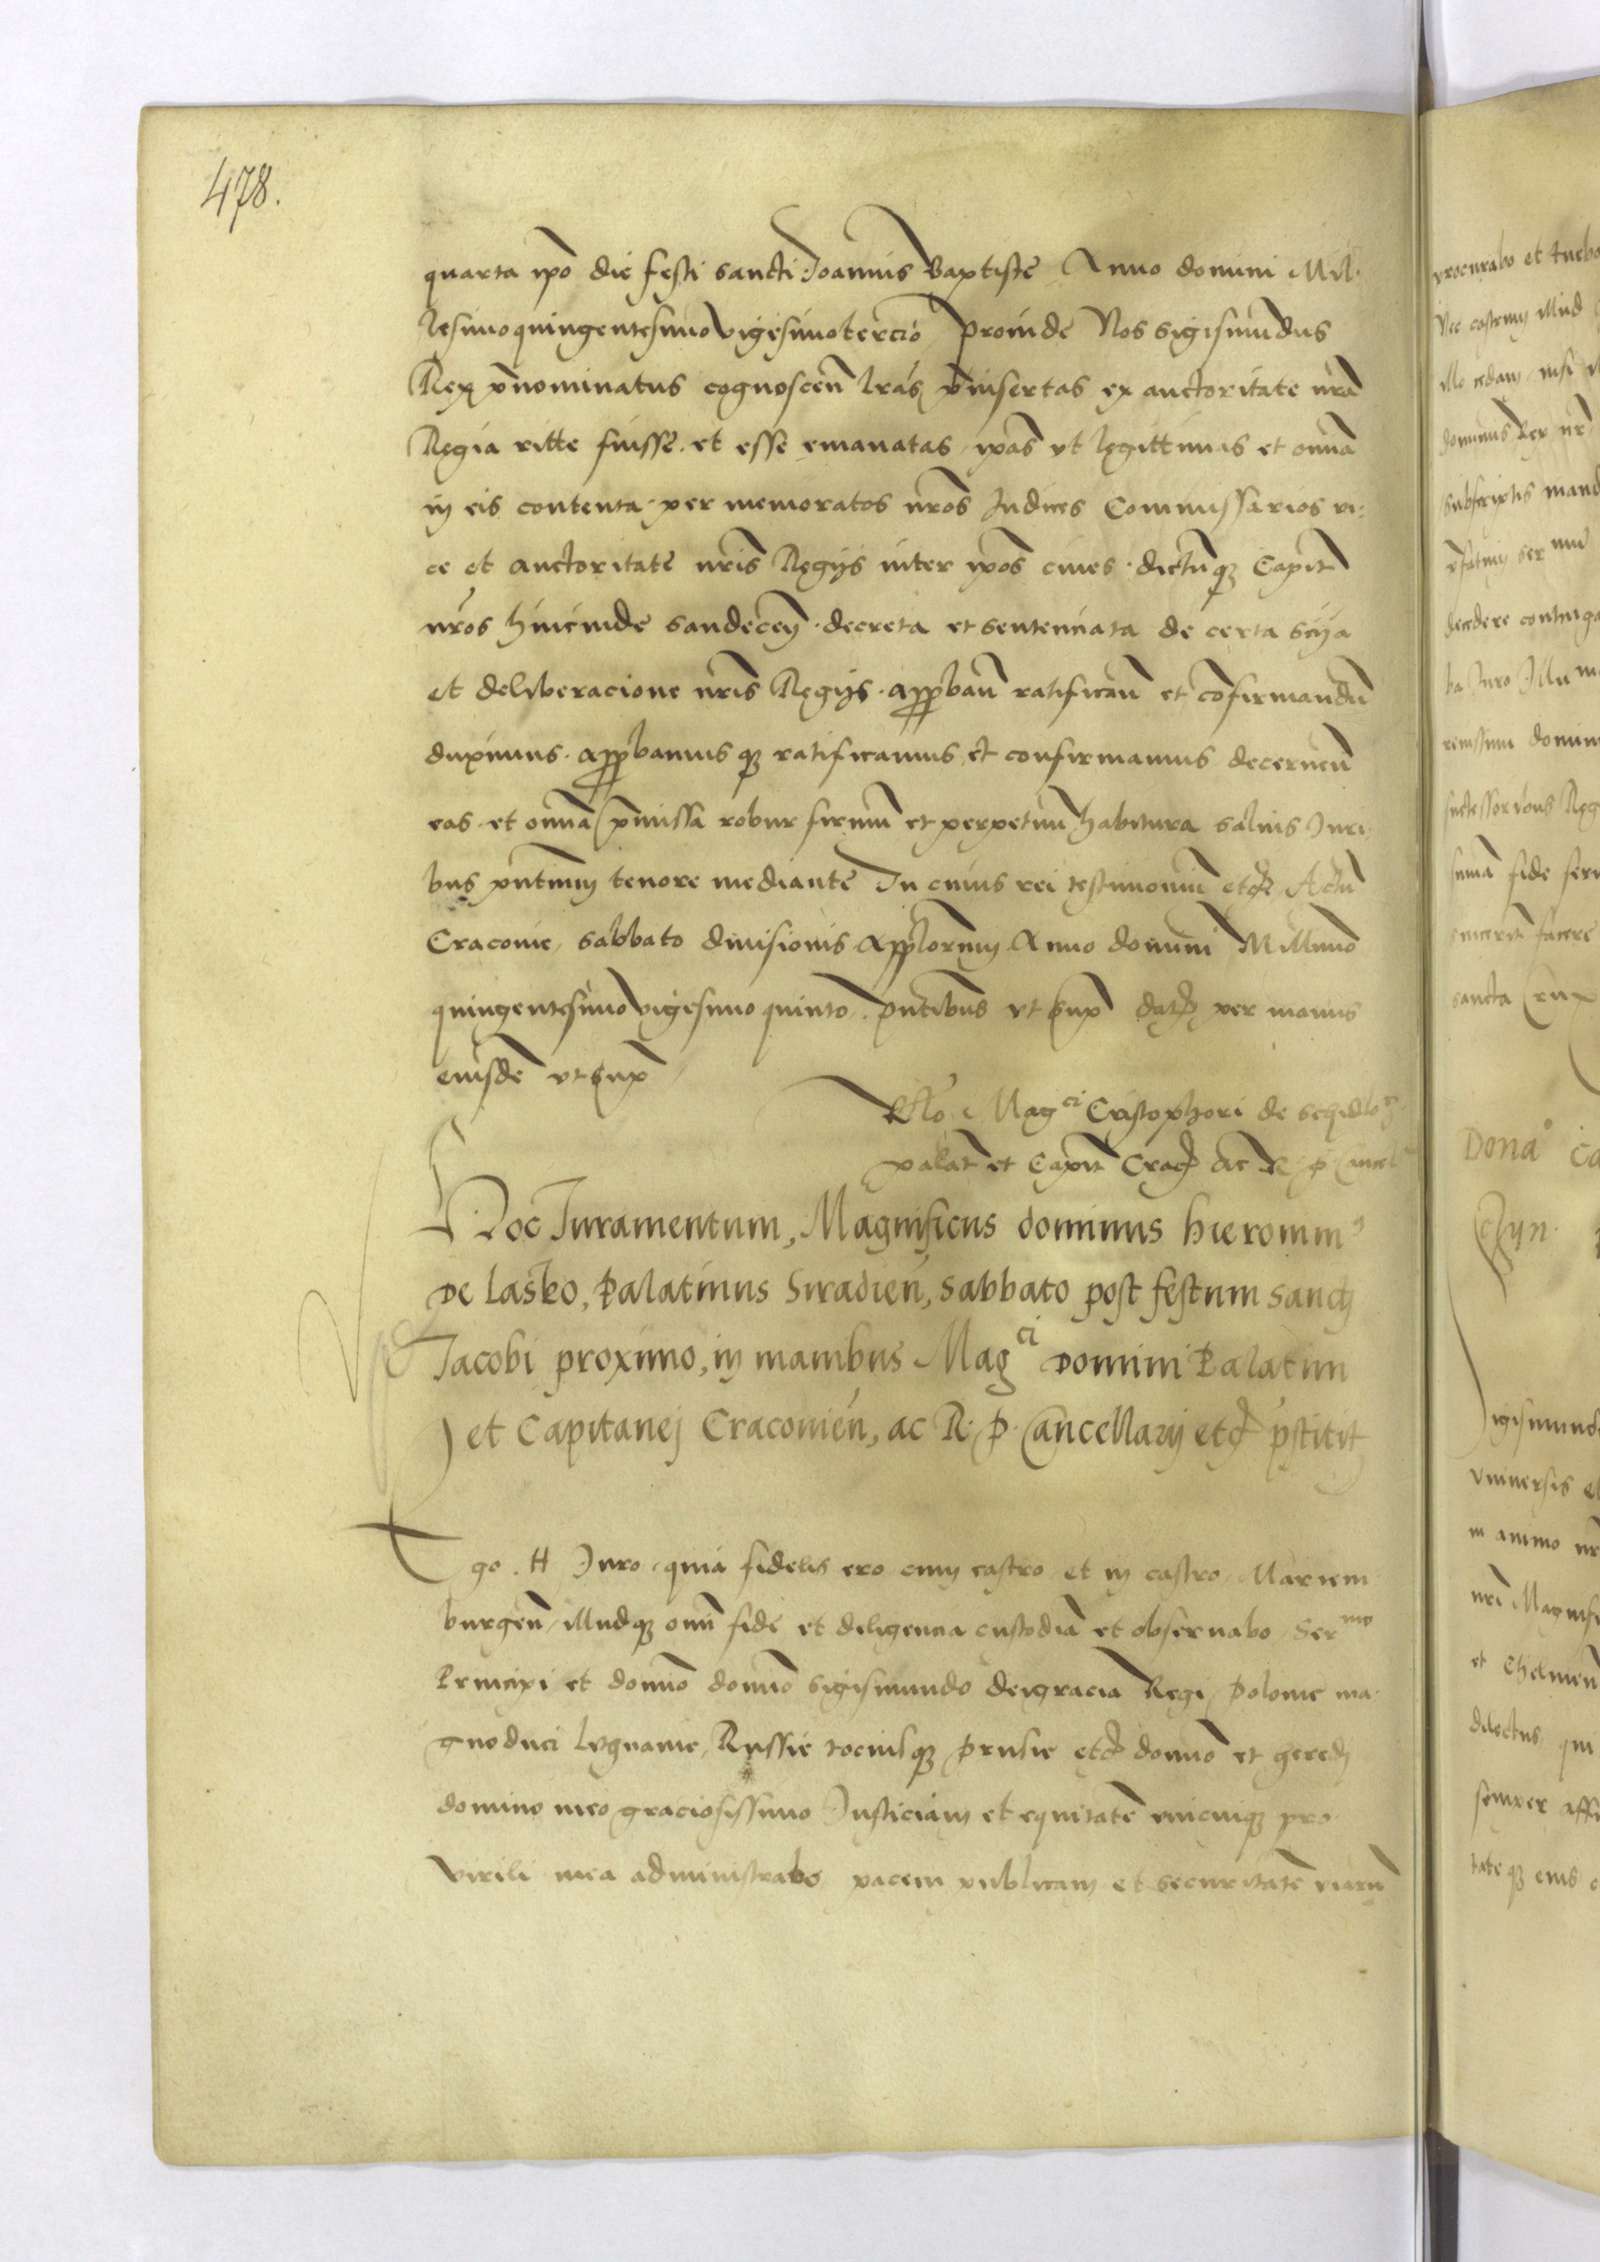 478.
quarta ipō die festi sancti Joannis Baptistē Anno domini Mil-
lesimo quingentesimo vigesimo tercio proinde Nos Sigismūdus
Rex p̄nominatus cognoscen̄ lrās p̄insertas ex auctoritate nrā
Regia ritte fuisse et esse emanatas ipās vt legittimas et om̄ia
in eis contenta per memoratos nrōs Judices Commissarios vi-
ce et auctoritate nrīs Regijs inter ipōs ciues dictūq3 Capit̄
nrōs hincinde Sandecen̄ decreta et sentenciata de certa scīja
et delyberacione nrīs Regijs appbān ratificān et cōfirmandū
duximus appbamus q3 ratificamus et confirmamus decernen̄
eas et om̄ia p̄missa robur firmū et perpetuū habitura saluis Juri-
bus pn̄tium tenore mediante In cuius rei testimoniū etc̄ Actū
Cracouie sabbato diuisionis Applorum Anno domini Millimo
quingentesimo vigesimo quinto pn̄tibus vt supra dat̄ per manus
eiusdē vt supra
Rlo Mag^ci Cristophori de Schidlo
palat̄ et Capit̄ Crac̄ ac R P Cancel
Hoc Juramentum, Magnificus dominus hieronim9
de Lasko, Palatinus Siradien̄, sabbato post festum sancti
Jacobi proximo, in manibus Mag^ci domini Palatini
et Capitanej Cracouien̄, ac R. P. Cancellarij etc̄ p̄stitit
Ego H Juro quia fidelis ero cum castro et in castro Mariem
burgen̄ illudq3 om̄i fide et diligencia custodiā et obseruabo Ser^mo
Principi et domīo domīo Sigismundo dei gracia Regi Polonie ma
gno duci Lytuanie Russie tociusq3 Prusie etc̄ domīo et heredi
domino meo graciosissimo Justiciam et equitatē vnicuiq3 pro
virili mea administrabo pacem publicam et securitatē viarū
procurabo et
Nec castrum illud
illo cedam nisi
dominus Rex nr̄
subscriptis mand
p̄fatum Ser mū
decedere continga
ba Juro Illu
renissimi domin
successoribus Reg
suma fide
sincerit̄ facere
sancta Crux
Donā
Czyn
Sigismund
Vniuersis et
in animo nr̄
nrī Magnifi
et Chelmen̄
dilectus qui
semper affi
tate q3 eius